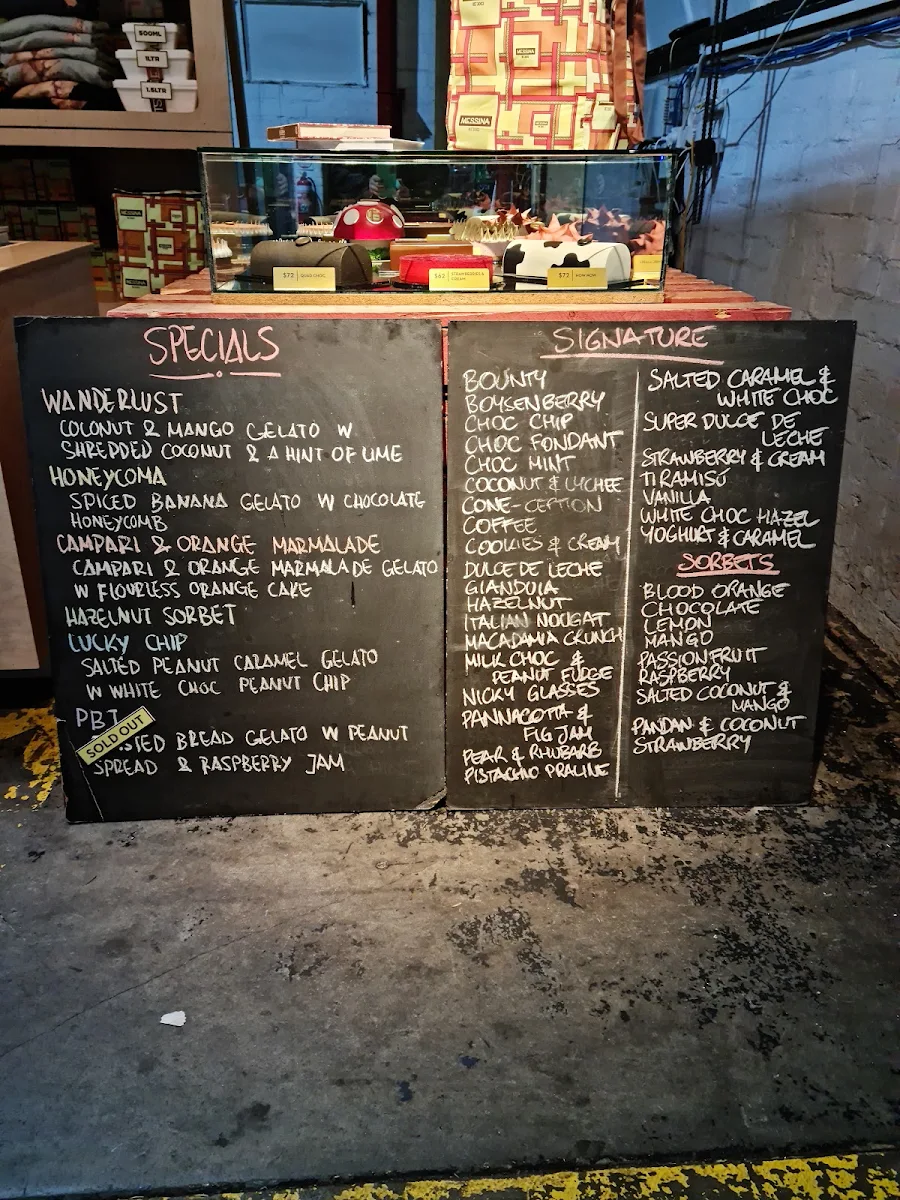 500ML
1LTR
1.5LTR
MESSINA
MESSINA
$72
$62 STRAWBERRIES & CREAM
$72
SPECIALS
WANDERLUST
COCONUT & MANGO GELATO W
SHREDDED COCONUT & A HINT OF LIME
HONEYCOMA
SPICED BANANA GELATO W CHOCOLATE
HONEYCOMB
CAMPARI & ORANGE MARMALADE
CAMPARI & ORANGE MARMALADE GELATO
W FLOURLESS ORANGE CAKE
HAZELNUT SORBET
LUCKY CHIP
SALTED PEANUT CARAMEL GELATO
W WHITE CHOC PEANUT CHIP
PBJ
SOLD OUT
STED BREAD GELATO W PEANUT
SPREAD & RASPBERRY JAM
SIGNATURE
BOUNTY
BOYSENBERRY
CHOC CHIP
CHOC FONDANT
CHOC MINT
COCONUT & LYCHEE
CONE-CEPTION
COFFEE
COOKIES & CREAM
DULCE DE LECHE
GIANDUIA
HAZELNUT
ITALIAN NOUGAT
MACADAMIA CRUNCH
MILK CHOC &
PEANUT FUDGE
NICKY GLASSES
PANNACOTTA &
FIG JAM
PEAR & RHUBARB
PISTACHIO PRALINE
SALTED CARAMEL &
WHITE CHOC
SUPER DULCE DE
LECHE
STRAWBERRY & CREAM
TIRAMISÚ
VANILLA
WHITE CHOC HAZEL
YOGHURT & CARAMEL
SORBETS
BLOOD ORANGE
CHOCOLATE
LEMON
MANGO
PASSIONFRUIT
RASPBERRY
SALTED COCONUT &
MANGO
PANDAN & COCONUT
STRAWBERRY